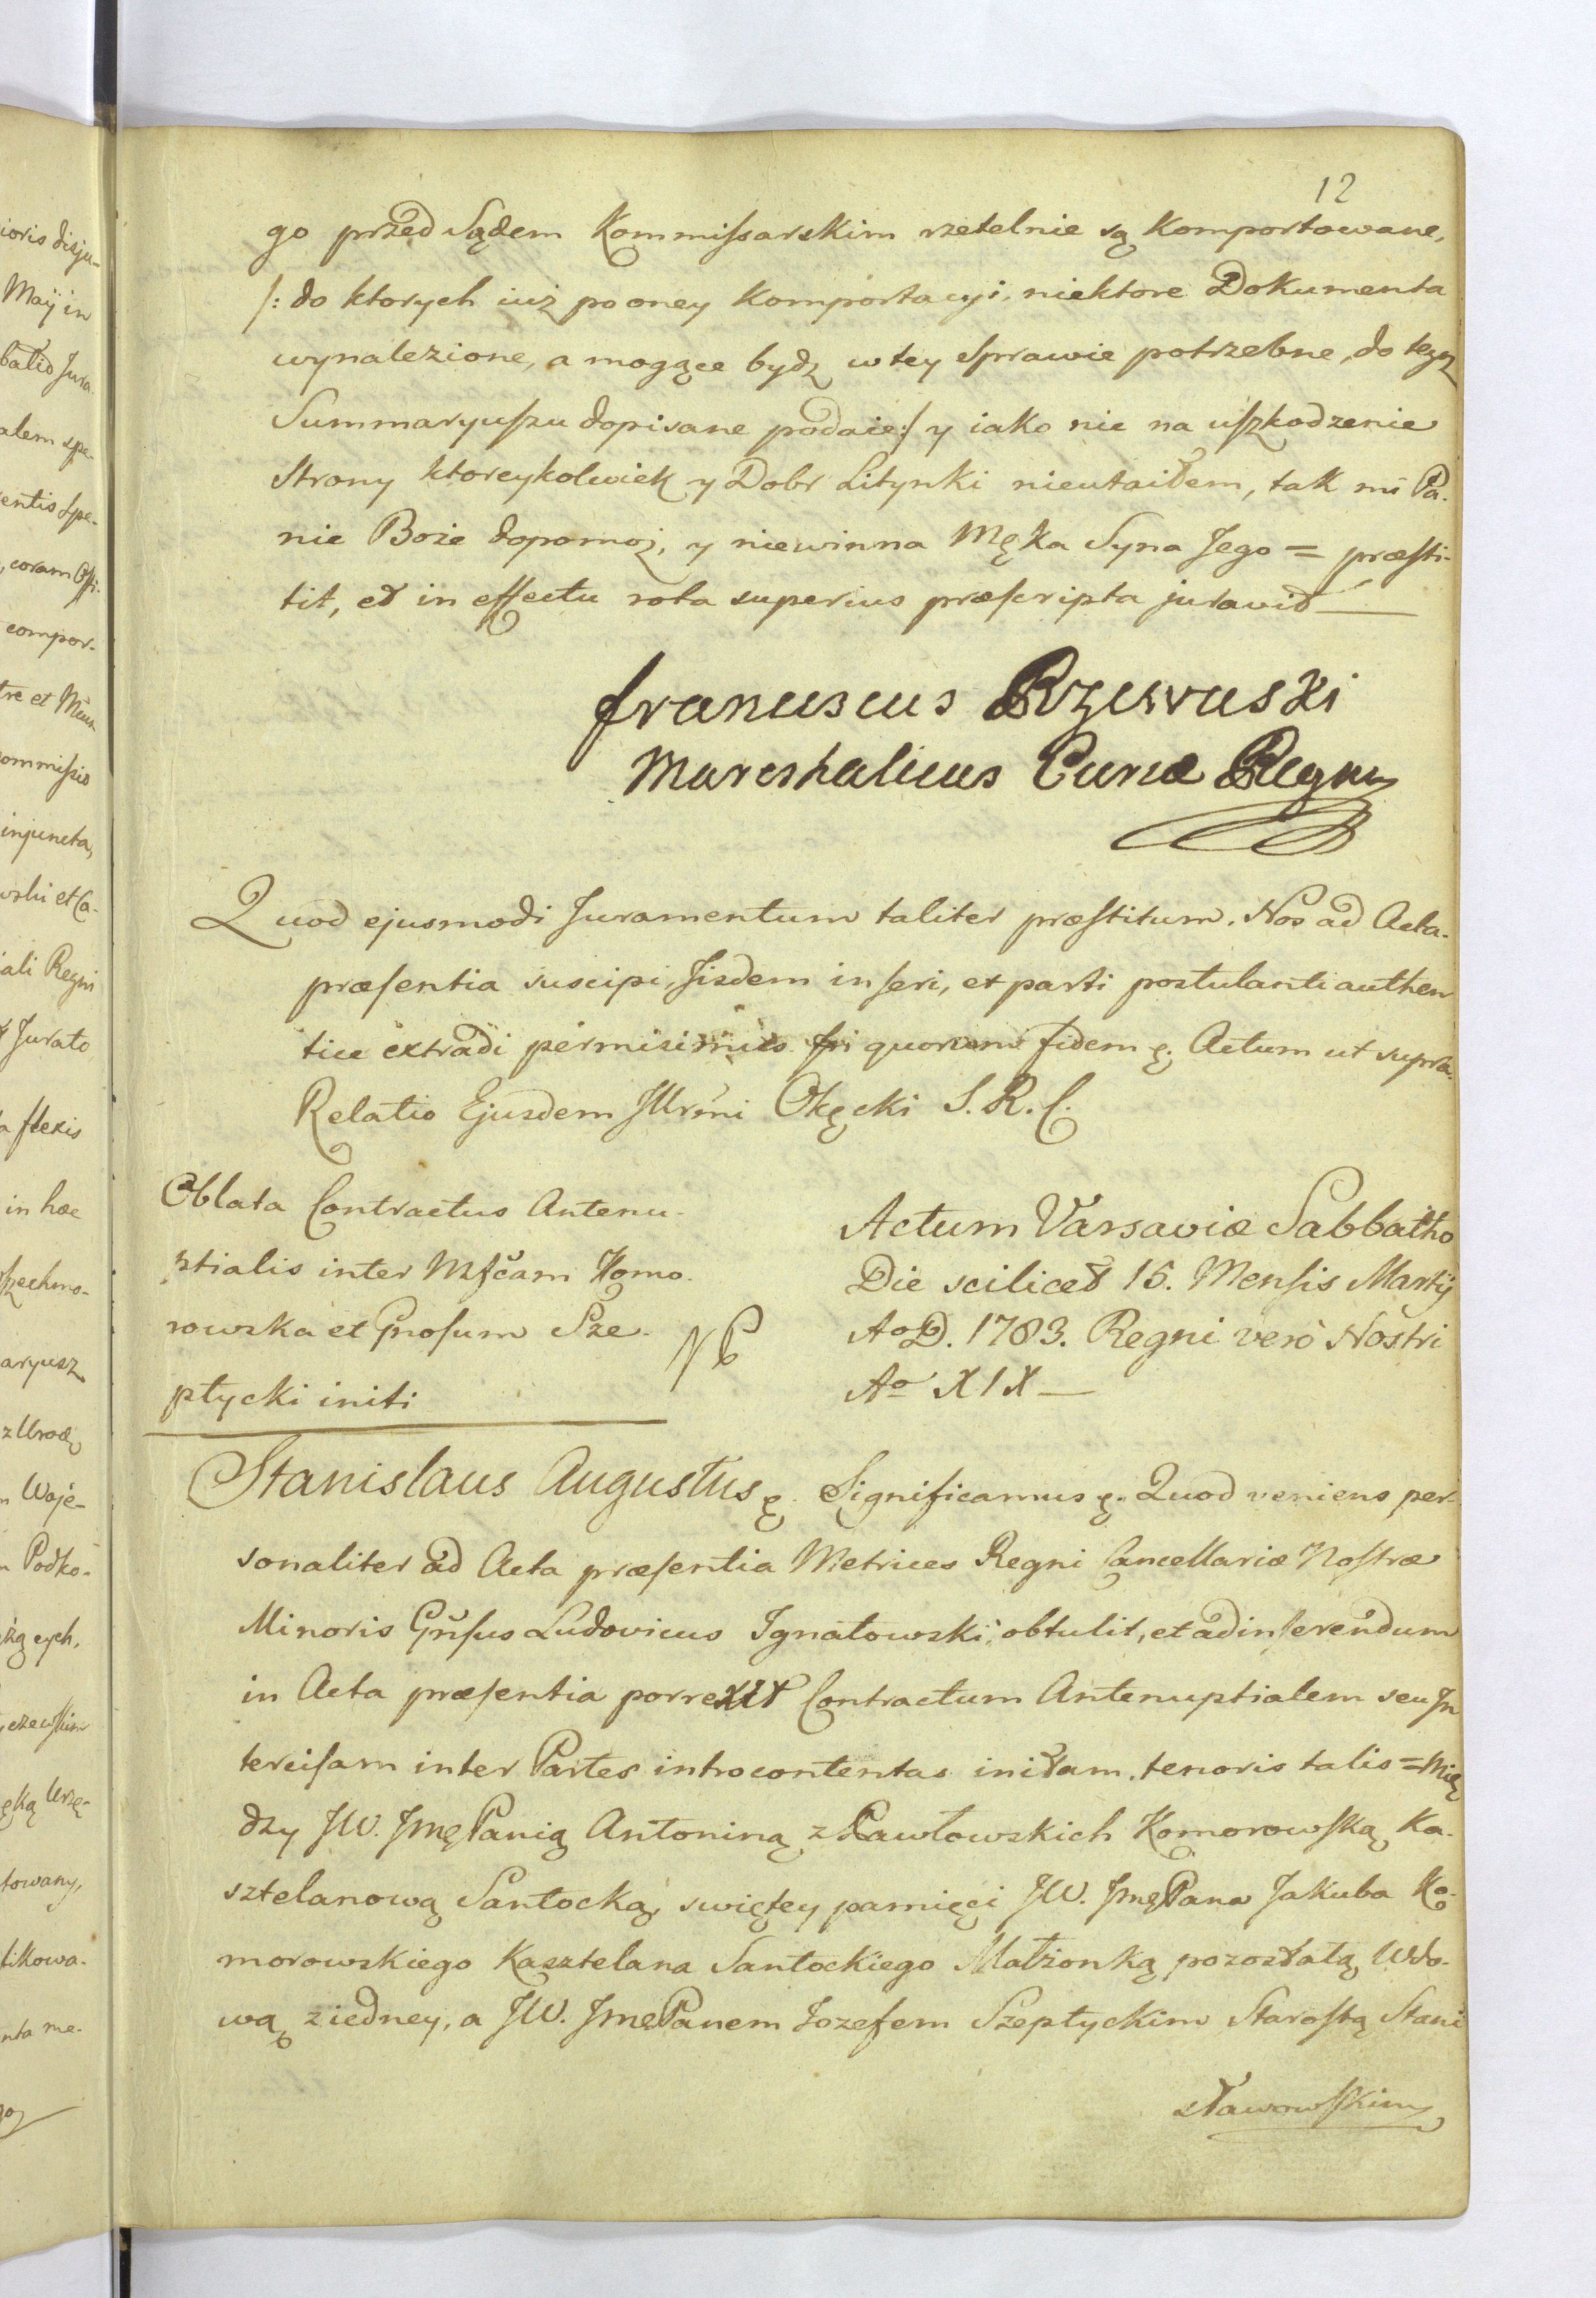 12
go przed Sądem Kommissarskim rzetelnie są Komportowane,
/: do ktorych iuż po oney Komportacyi, niektore Dokumenta
wynalezione, a mogące bydź w tey Sprawie potrzebne, do tegoż
Summaryuszu dopisane podaie :/ y iako nic na uszkodzenie
Strony ktoreykolwiek y Dobr Litynki nieutaiłem, tak mi Pa-
nie Boże dopomoż, y niewinna Męka Syna Jego = præsti-
tit, et in effectu rota superius præscripta juravit —
Franciscus Rzewuski
Mareshalicus Curiæ Regni
Quod ejusmodi Juramentum taliter præstitum. Nos ad Acta
præsentia suscipi, Jisdem inseri, et parti postulanti authen
tice extradi permisimus. In quorum fidem ę. Actum ut supra.
Relatio Ejusdem Illrmi Okęcki S. R. C.
Oblata Contractus Antenu-
ptialis inter Mfcam Komo-
rowska et Gnosum Sze-
ptycki initi
NB
Actum Varsaviæ Sabbatho
Die scilicet 15. Mensis Martij
Ao D. 1783. Regni verò Nostri
Ao XIX —
Stanislaus Augustus ę. Significamus ę. Quod veniens per-
sonaliter ad Acta præsentia Metrices Regni Cancellariæ Nostræ
Minoris Gnsus Ludovicus Ignatowski, obtulit, et ad inserendum
in Acta præsentia porrexit Contractum Antenuptialem seu In
tercisam inter Partes introcontentas initam, tenoris talis = Mię
dzy JW. Jmę Panią Antoniną z Pawłowskich Komorowską Ka-
sztelanową Santocką, swiętey pamięci JW. Jmę Pana Jakuba Ko-
morowskiego Kasztelana Santockiego Małżonką pozostałą Wdo-
wą z iedney, a JW. Jmę Panem Jozefem Szeptyckim Starostą Stani
sławowskim